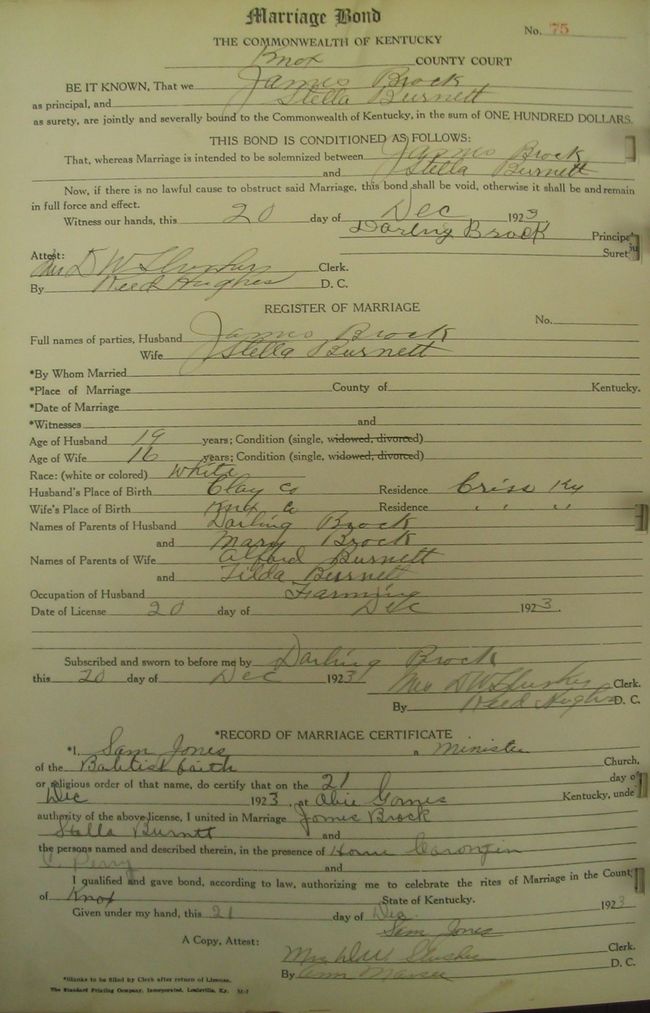 Marriage Bond
No. 75
THE COMMONWEALTH OF KENTUCKY
Knox COUNTY COURT
BE IT KNOWN, That we James Brock
as principal, and Stella Burnett
as surety, are jointly and severally bound to the Commonwealth of Kentucky, in the sum of ONE HUNDRED DOLLARS.
THIS BOND IS CONDITIONED AS FOLLOWS:
That, whereas Marriage is intended to be solemnized between James Brock
and Stella Burnett
Now, if there is no lawful cause to obstruct said Marriage, this bond shall be void, otherwise it shall be and remain
in full force and effect.
Witness our hands, this 20 day of Dec 1923
Darling Brock Principal
Surety
Attest:
Mrs D W Slusher Clerk.
By Reed Hughes D. C.
REGISTER OF MARRIAGE
No.
Full names of parties, Husband James Brock
Wife Stella Burnett
*By Whom Married
*Place of Marriage County of Kentucky.
*Date of Marriage
*Witnesses and
Age of Husband 19 years; Condition (single, widowed, divorced)
Age of Wife 16 years; Condition (single, widowed, divorced)
Race: (white or colored) White
Husband's Place of Birth Clay Co Residence Criss Ky
Wife's Place of Birth Knx Co Residence " " "
Names of Parents of Husband Darling Brock
and Mary Brock
Names of Parents of Wife Alford Burnett
and Tilda Burnett
Occupation of Husband Farming
Date of License 20 day of Dec 1923.
Subscribed and sworn to before me by Darling Brock
this 20 day of Dec 1923 Mrs D W Slusher Clerk.
By Reed Hughes D. C.
*RECORD OF MARRIAGE CERTIFICATE
*I, Sam Jones a Minister
of the Babtist faith Church,
or religious order of that name, do certify that on the 21 day of
Dec 1923, at Obie Kentucky, unde
authority of the above license, I united in Marriage James Brock
Stella Burntt and
the persons named and described therein, in the presence of
C. Perry and
I qualified and gave bond, according to law, authorizing me to celebrate the rites of Marriage in the Count
of Knox State of Kentucky.
Given under my hand, this 21 day of Dec. 1923
Sam Jones
A Copy, Attest: Mrs D W Slusher Clerk.
By Ann D. C.
*Blanks to be filled by Clerk after return of License.
The Standard Printing Company, Incorporated, Louisville, Ky.